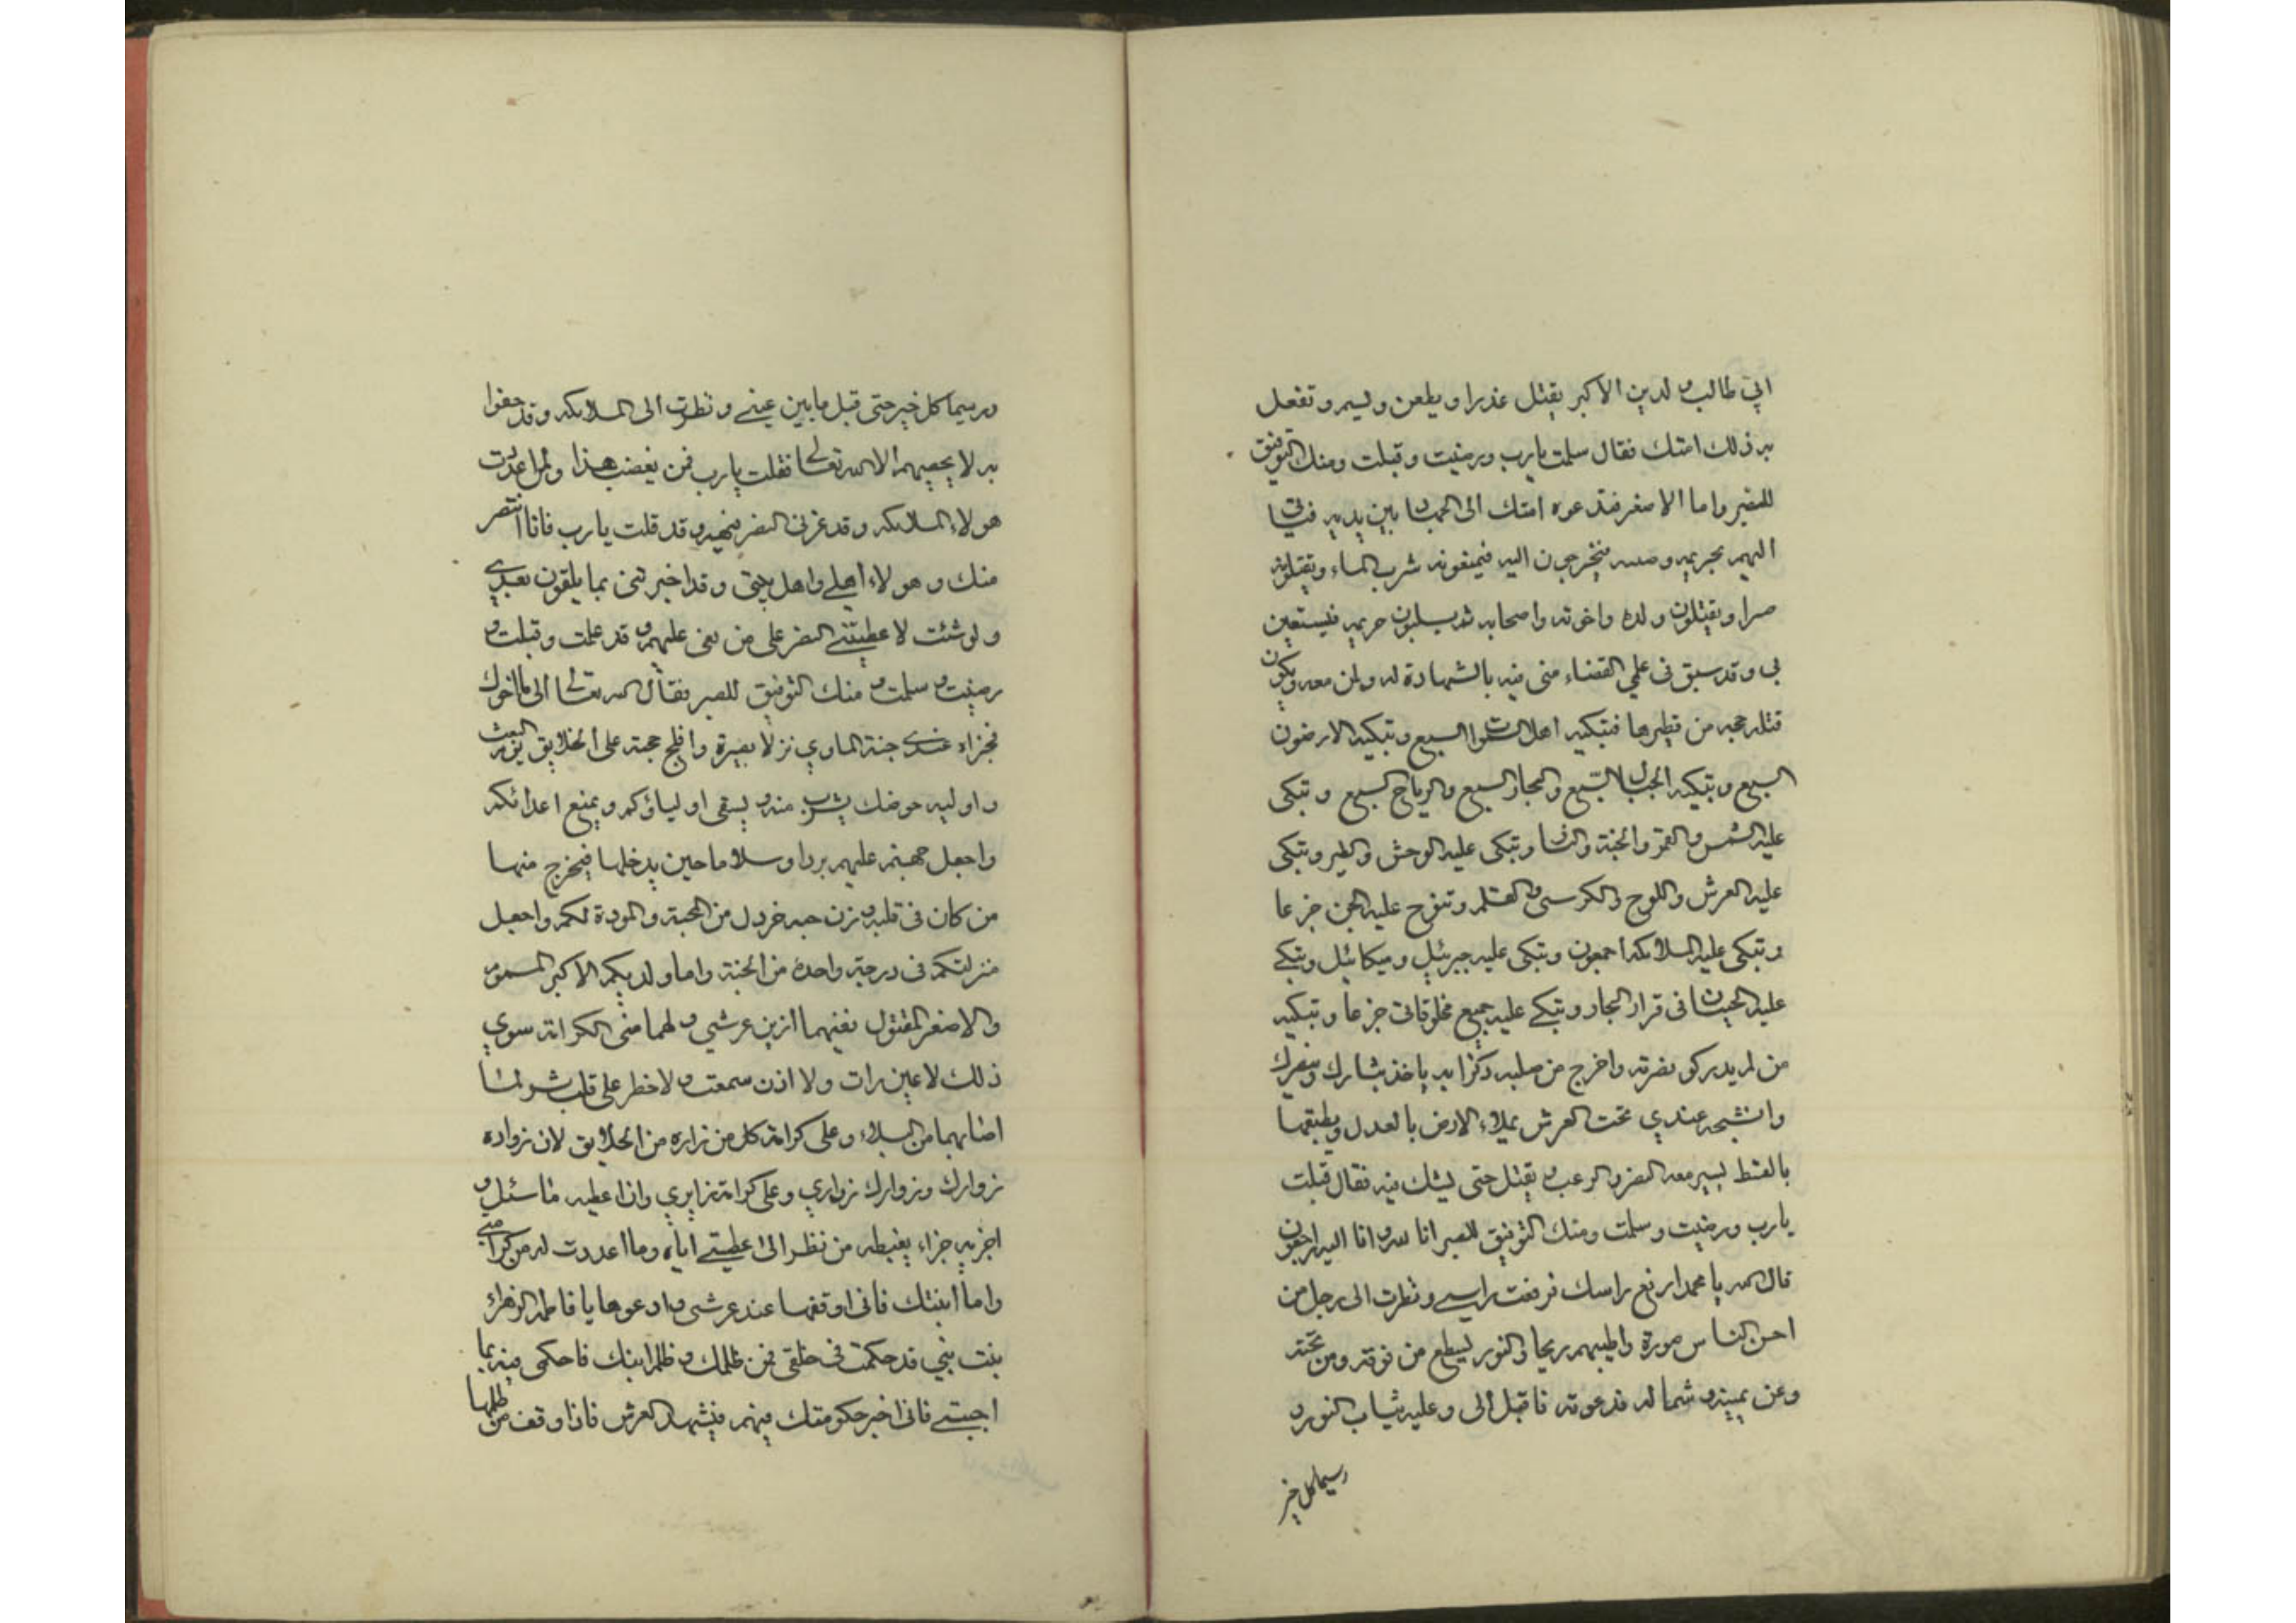 ابي طالب و لدين الاكبر يقتل غدرا و يطعن و يسم و تفعل
به ذلك امتك فقال سلمت يا رب ورضيت وقبلت ومنك التوفيق
للصبر واما الاصغر فتدعوه امتك الى الجهاد
اليهم بحريمه فيخرجون اليه فيمنعونه شرب الماء ويقتلونه
صبرا ويقتلون ولده واخوته واصحابه ثم يسلبون حريمه فيستعين
بي وقد سبق في علمي القضاء مني فيه بالشهادة له ولمن معه ويكون
قتله حجه من قطرها فتبكيه اهل السموات السبع وتبكيه الارضون
السبع وتبكيه الجبال السبع والبحار السبع والرياح السبع وتبكى
عليه الشمس والقمر والجنة والنار وتبكى عليه الوحش والطير وتبكى
عليه العرش واللوح والكرسى والقلم وتنوح عليه الجن جزعا
وتبكى عليه الملائكه اجمعون وتبكى عليه جبرئيل وميكائيل وتبكي
عليه الحيتان في قرار البحار وتبكي عليه جميع مخلوقاتى جزعا وتبكيه
من لم يدركو نصرته واخرج من صلبه ذكرا به ياخذ بثارك ونصرك
وان شبحه عندي تحت العرش يملاء الارض بالعدل ويطبقها
بالقسط يسير معه النصر والرعب و يقتل حتى يشك فيه فقال قبلت
يا رب ورضيت وسلمت ومنك التوفيق للصبر انا لله وانا اليه راجعون
قال الله يا محمد ارفع راسك فرفعت راسي ونظرت الى رجل من
احسن الناس صورة واطيبهم ريحا والنور يسطع من فوقه ومن تحته
وعن يمينه وشماله فدعوته فاقبل الى وعليه ثياب النور و
سيما كل خير
وسيما كل خير حتى قبل ما بين عيني ونظرت الى الملائكه وقد حفوا
به لا يحصيهم الا الله تعالى فقلت يا رب فمن يغضب هذا ولمن اعددت
هولاء الملائكه وقد غرنى النصر فيهم وقد قلت يا رب فانا انتصر
منك وهولاء اهلي واهل بيتى وقد اخبرتنى بما يلقون بعدي
ولو شئت لاعطيتني النصر على من بغى عليهم وقد علمت وقبلت و
رضيت و سلمت و منك التوفيق للصبر فقال الله تعالى الى اما اخوك
فجزاءه عندي جنة الماوي نزلا بصبره وافلج حجته على الخلايق يوم البعث
واوليه حوضك يشرب منه ويسقى اولياؤكم ويمنع اعدائكم
واجعل جهنم عليهم بردا وسلاما حين يدخلها فيخرج منها
من كان في قلبه وزن حبه خردل من المحبة والمودة لكم واجعل
منزلتكم في درجة واحدة من الجنة واما ولديكم الاكبر المسموم
والاصغر المقتول فعنهما ازين عرشي و لهما منى الكرامة سوي
ذلك لا عين رات ولا اذن سمعت و لا خطر على قلب بشر لما
اصابهما من البلاء وعلى كرامة كل من زاره من الخلايق لان زواره
زوارك وزوارك زواري وعلى كرامة زايري وانا اعطيه ما سئل و
اجزيه جزاء يغبطه من نظر الى عطيتي اياه وما اعددت له من كرامتي
واما ابنتك فانى اوقفها عند عرشي وادعوها يا فاطمه الزهراء
بنت نبيي قد حكمت في خلقى فمن ظلمك و ظلم ابنك فاحكمى فيه بما
اجبتي فانى اجيز حكومتك فيهم فيشهد العرش فاذا وقف من ظلمها